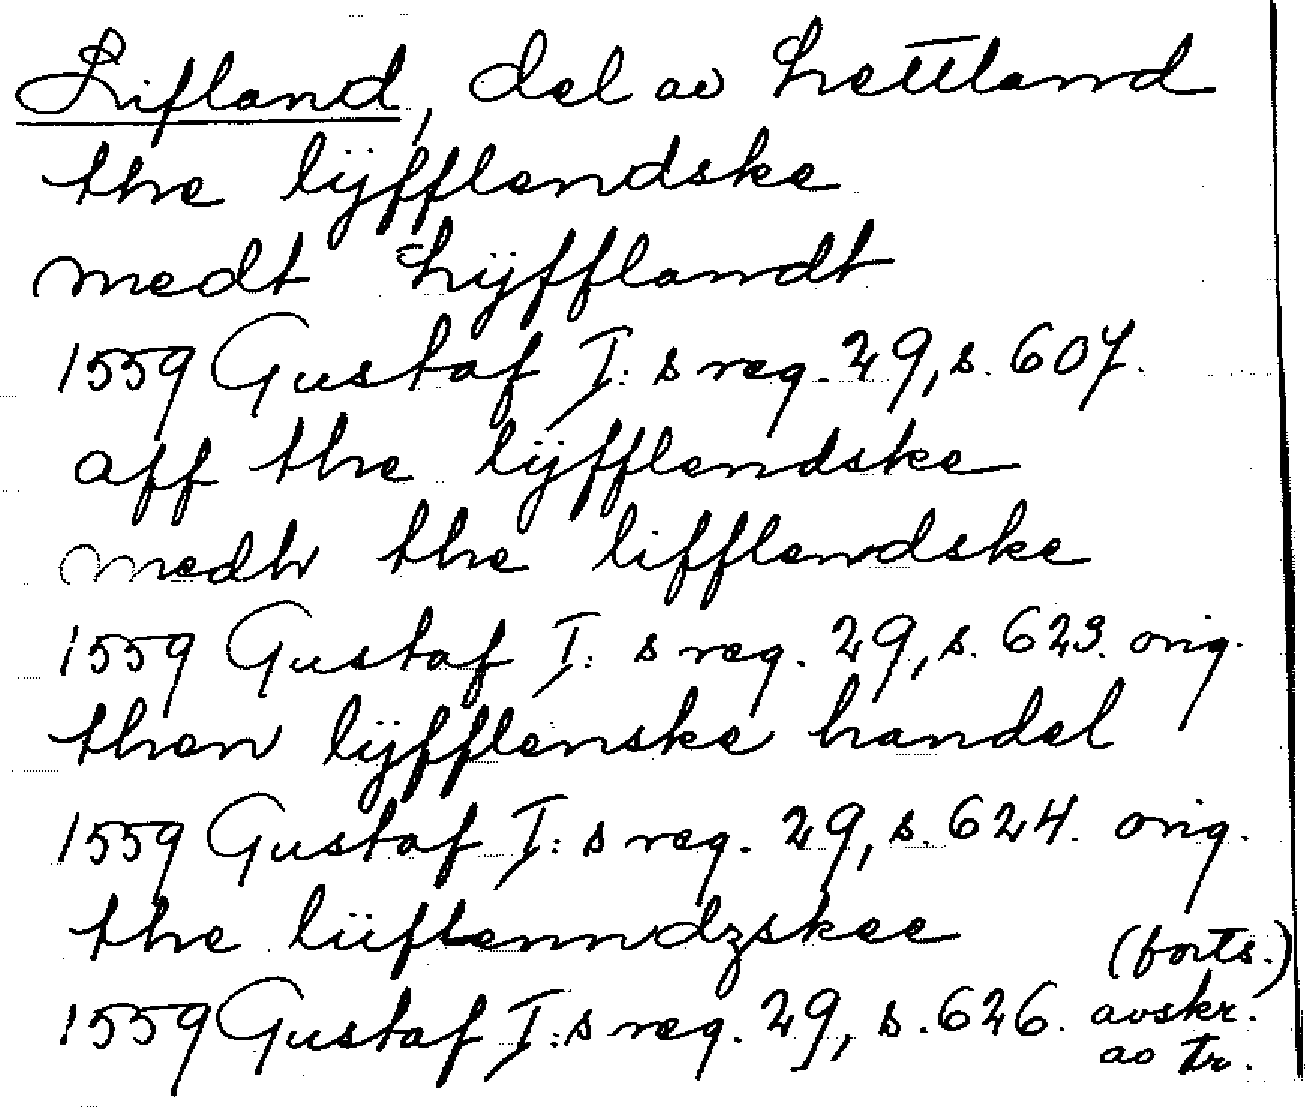 Lifland, del av Lettland
the lÿfflendske
medt Lÿfflandt
1559 Gustaf I:s reg. 29, s. 607.
aff the lÿfflendske
medh the lifflendske
1559 Gustaf I:s reg. 29, s. 623. orig.
then lÿfflenske handel
1559 Gustaf I:s reg. 29, s. 624. orig.
the liiflenndzskee
(forts.)
1559 Gustaf I:s reg. 29, s. 626. avskr.
av tr.